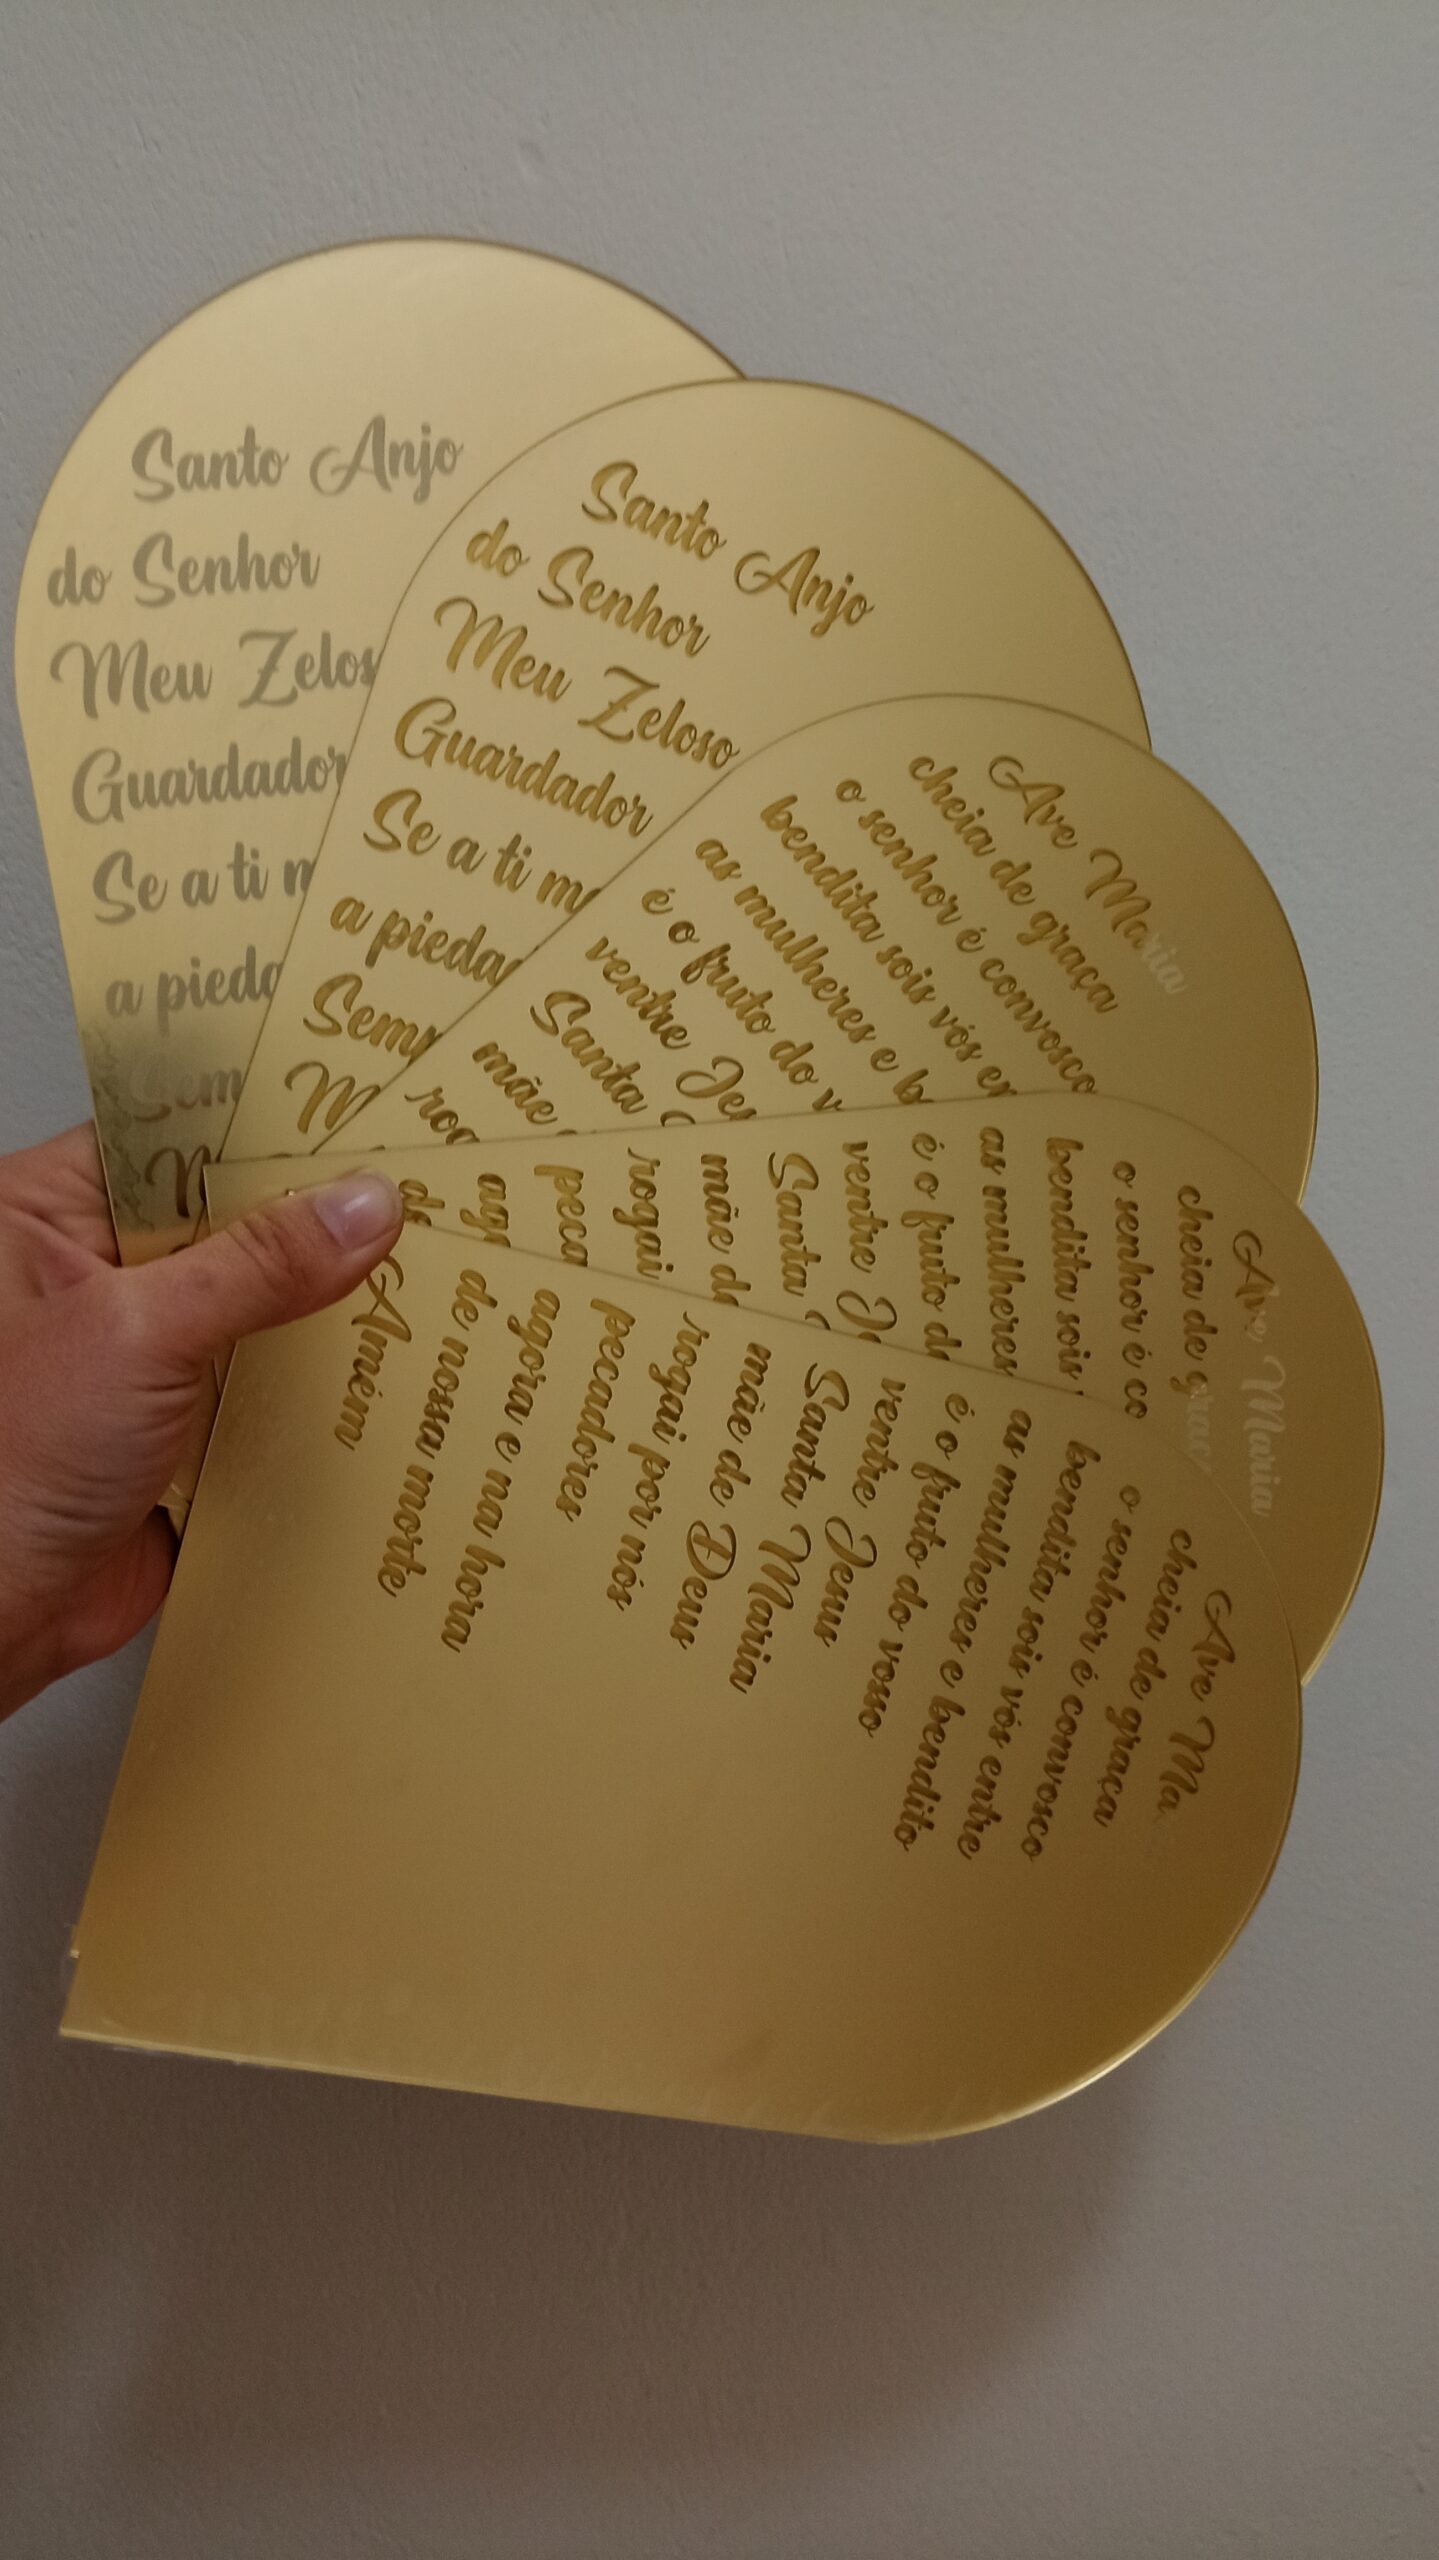 Santo Anjo
do Senhor
Meu Zelos
Guardador
Se a ti m
a pieda
Sem
Santo Anjo
do Senhor
Meu Zeloso
Guardador
Se a ti me
a pieda
Semp
M
Ave Maria
cheia de graça
o senhor é convosco
bendita sois vós en
as mulheres e b
é o fruto do v
ventre Jes
Santa
mãe
rog
Ave Maria
cheia de graç
o senhor é co
bendita sois
as mulheres
é o fruto d
ventre Je
Santa
mãe d
rogai
peca
ag
de
Ave Ma
cheia de graça
o senhor é convosco
bendita sois vós entre
as mulheres e bendito
é o fruto do vosso
ventre Jesus
Santa Maria
mãe de Deus
rogai por nós
pecadores
agora e na hora
de nossa morte
Amém